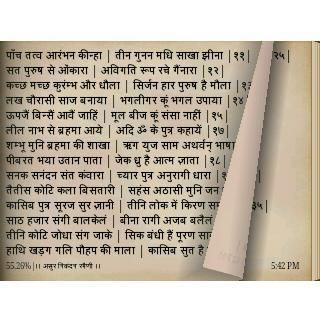 पाँच तत्व आरंभन कीन्हा | तीन गुनन मधि साखा झीना |११| २५|
सत पुरुष से ओंकारा | अविगति रूप रचे गैंनारा |१२|
कच्छ मच्छ कुरंम्भ और धौला | सिर्जन हार पुरुष है मौला |१३
लख चौरासी साज बनाया | भगलीगर कूं भगल उपाया |१४
ऊपजैं बिनसैं आवैं जाहिं | मूल बीज कूं संसा नाहीं |१५|
लील नाभ से ब्रहमा आये | आदि ॐ के पुत्र कहायें |१७|
शम्भू मुनि ब्रहमा की शाखा | ऋग युज साम अथर्वन भाषा
पीबरत भया उतान पाता | जेक ध्रु है आत्म ज्ञाता |१८|
सनक सनंदन संत कंवारा | च्यार पुत्र अनुरागी धारा |१
तैतीस कोटि कला बिसतारी | सहंस अठासी मुनि जन
कासिब पुत्र सूरज सुर ज्ञानी | तीनि लोक में किरण सम ३५|
साठ हजार संगी बालकेलं | बीना रागी अजब बलेलं
तीनि कोटि जोधा संग जाके | सिक बंधी हैं पूरण सा
हाथि खड़ग गलि पौहप की माला | कासिब सुत है
55.26% |।। असुर निकंदन रमैणी ।। 5:42 PM